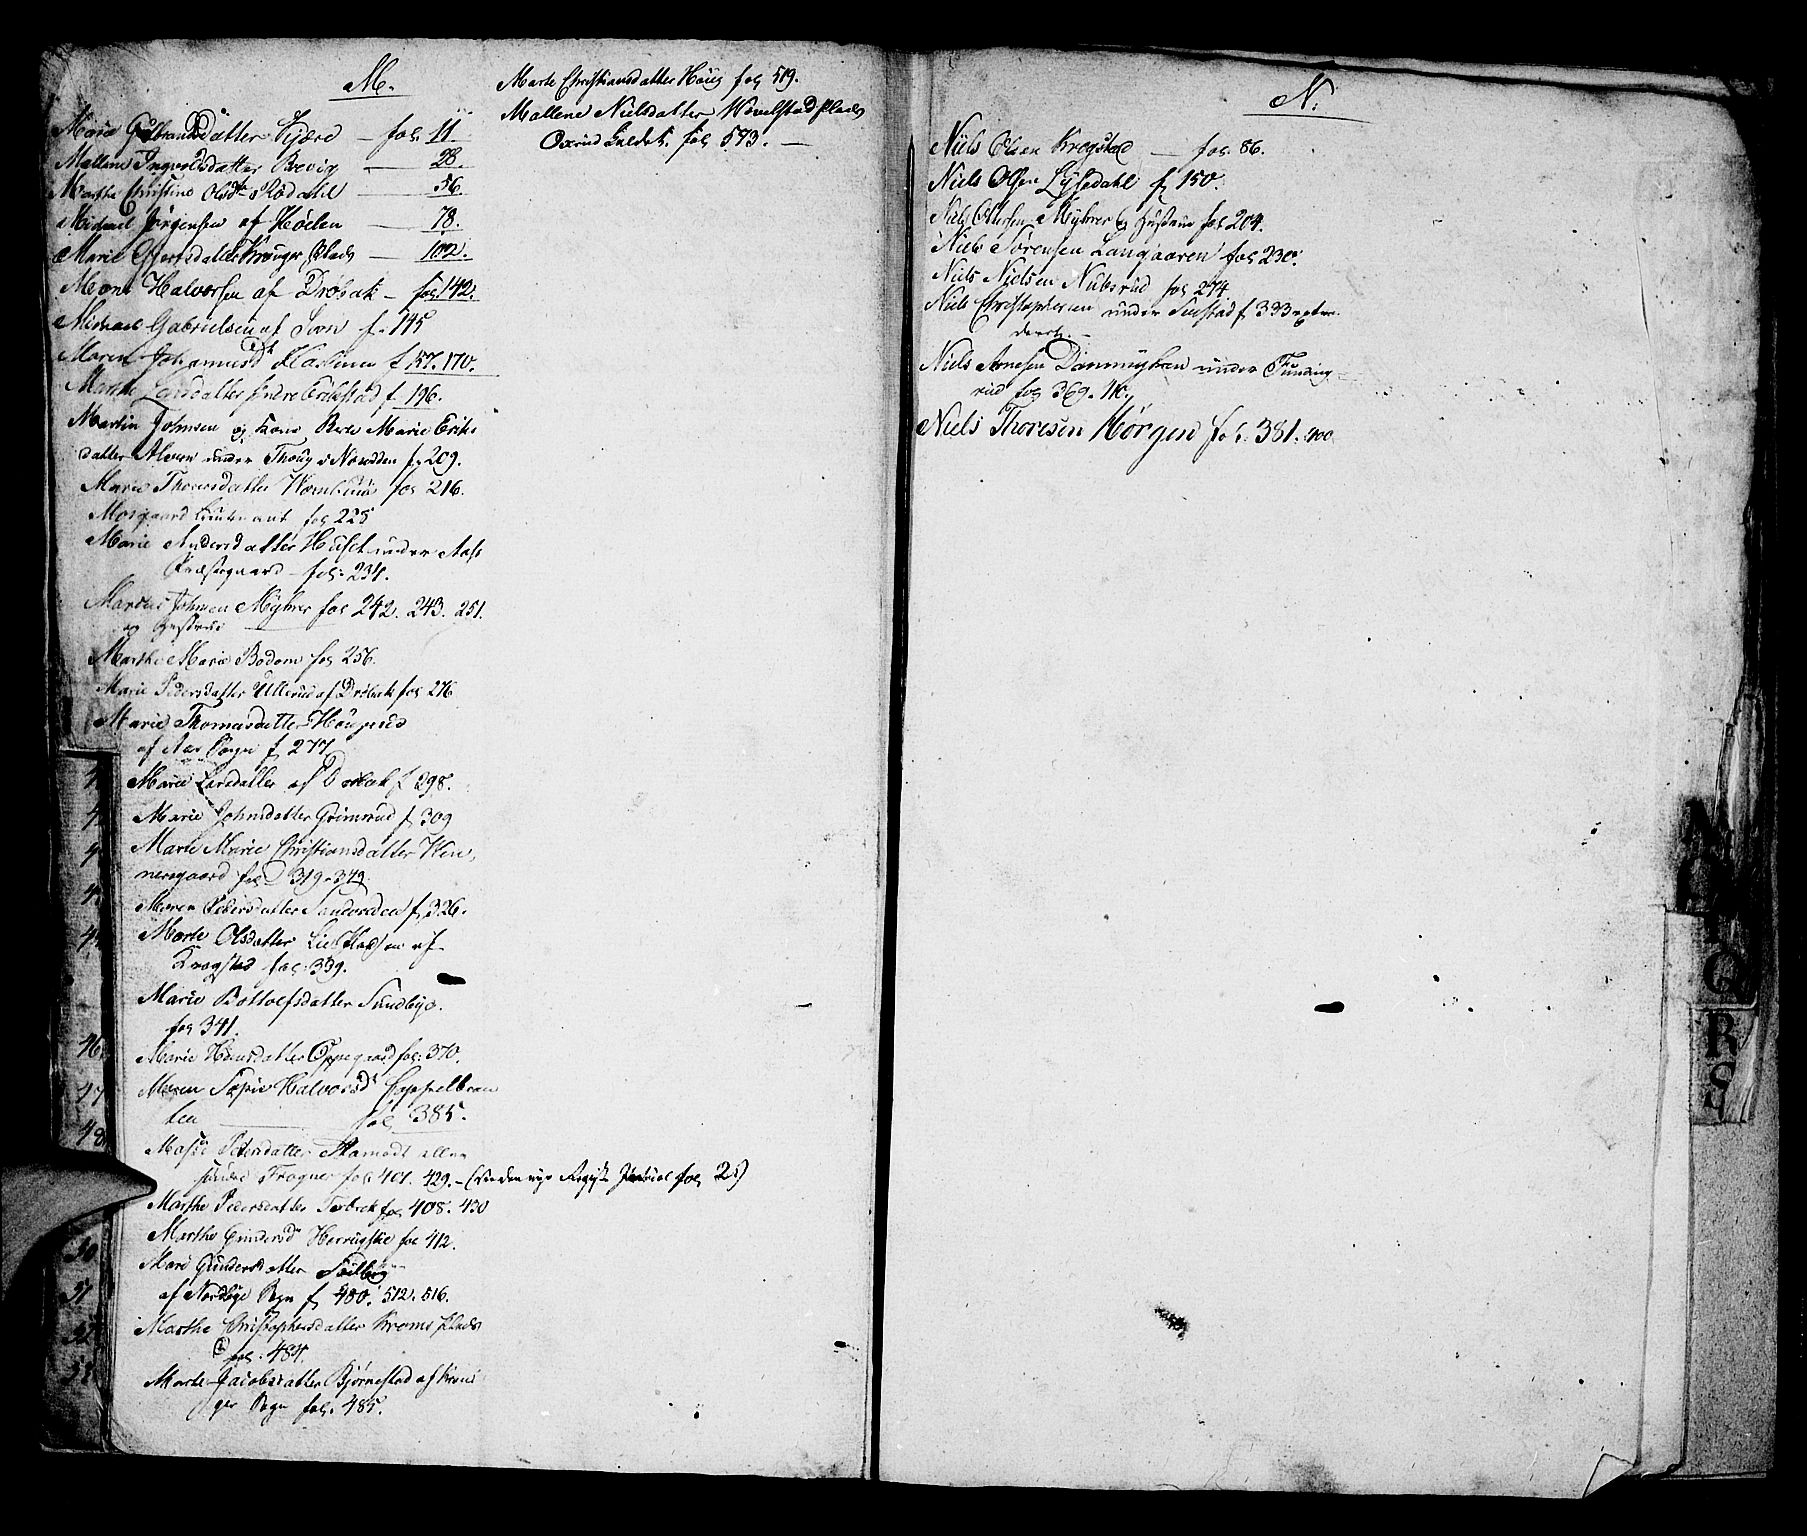 M.
Marie Gulbrandsdatter Kjære — fol 11
Mallene Ingvoldsdatter Brevig — 28.
Marthe Christine Olsdtr Rodahl — 56.
Michael Jørgensen af Hølen — 78.
Marie Gjertsdatter Krauger Plads — 102.
Mons Halvorsen af Drøbak — fol. 142.
Michael Gabrielsen af Soon f. 145
Maren Johannesd. f 57. 170.
Marthe Larsdatter Indre Erikstad f. 196.
Martin Johnsen og Kone Berte Marie Eriks
datter under Thoug i Nordden f. 209.
Marie Thoresdatter fol 216.
Morgaard Lieutenant fol 225
Marie Andersdatter Huset under Aas
Præstegaard fol: 234.
Marcus Johnsen Myhrer fol 242. 243. 251.
og Hustrue
Marthe Marie Bodom fol 256.
Marie Pedersdatter Ullerud af Drøbak fol 276
Marie Thomasdatter Haugerud
af Aas Sogn f 277
Marie Larsdatter af Drøbak f 298.
Marie Johnsdatter Grimsrud f 309
Marte Marie Christiansdatter Ken,
nersgaard fol 319-349.
Maren Pedersdatter Sandvedden f 326.
Marte Olsdatter Lie Pladsen af
Krogstad fol: 339.
Marie Bottolfsdatter Sundbye.
fol 341.
Marie Hansdatter Oppegaard fol: 370.
Maren Sophie Halvorsd. Cappelbraa
ten fol 385.
Petersdatter Stamodt
Frogner fol: 401. 429. — (See den nye Regist. Journal fol 25)
Marthe Pedersdatter Torbek fol 408. 430
Marthe Herregske fol 412.
Mari Gundersdatter Solberg
af Nordbye Sogn f 480. 512. 516.
Marthe Christophersdatter Kroms Plads
fol: 484.
Marte Jacobsdatter Bjørnestad af Kraa
ger Sogn fol. 485.
Marte Christiansdatter Haug fol 519.
Mallene Nielsdatter Wevelstad Plads
fol 573. —
N:
Niels Olsen Krogstad — fol. 86.
Niels Olsen Lysedahl f 150.
Niels Ottersen Myhrer og Hustrue fol 204.
Niels Sørensen Langaaren fol 230.
Niels Nielsen Nubsrud fol 274.
Niels Christophersen under Suestad f 333
Niels Arnesen Dammyhren under Funding
rud fol 369.
Niels Thoresen Hørgen fol. 381. 400
46
47
48
50
51
52
53
N
O
P
Q
R
S